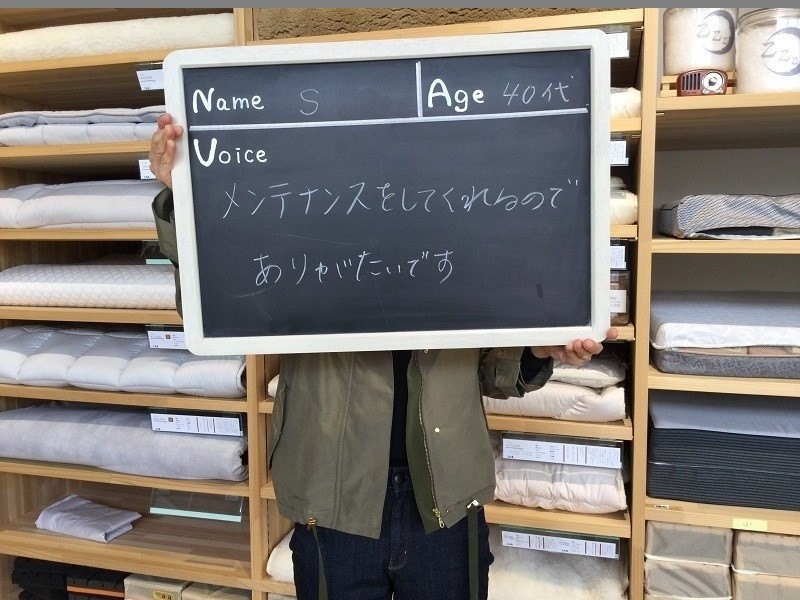 Name S
Age 40代
Voice
メンテナンスをしてくれるので
ありがたいです
ZZZ